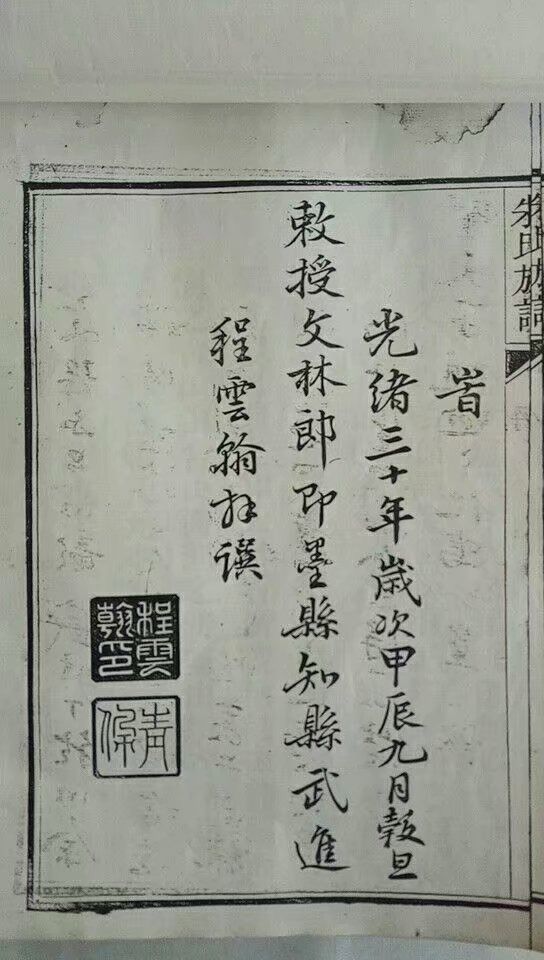 朱氏族譜
旹
光緒三十年歲次甲辰九月穀旦
敕授文林郎即墨縣知縣武進
程雲翰拜譔
程雲翰印
青佩